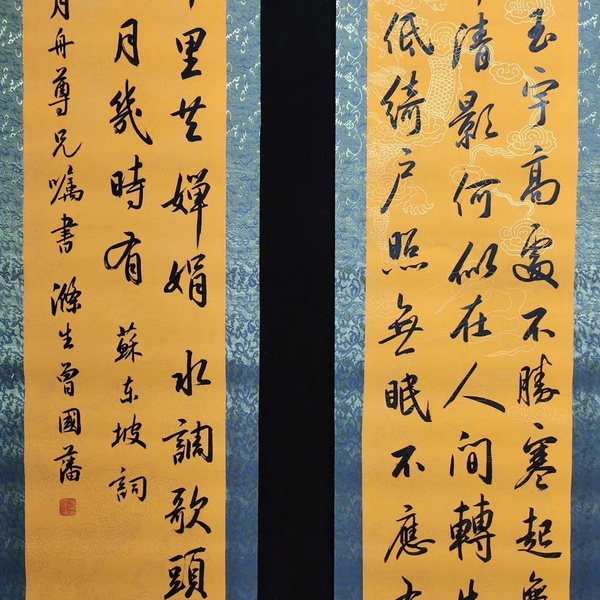 玉宇高處不勝寒起
清影何似在人間轉
低綺戶照無眠不應
里共嬋娟水調歌頭
月幾時有蘇東坡詞
月舟尊兄囑書滌生曾國藩